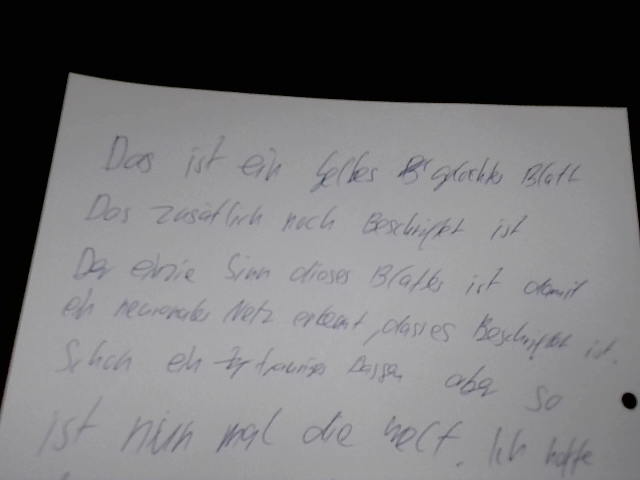 Das ist ein gelbes Blatt
Das zusätlich noch Beschriftet ist
Der einzie Sinn dieses Blattes ist damit
ein neuronales Netz erkennt, dass es Beschriftet ist.
Schon ein trauriges aber so
ist nun mal die welt. Ich hoffe